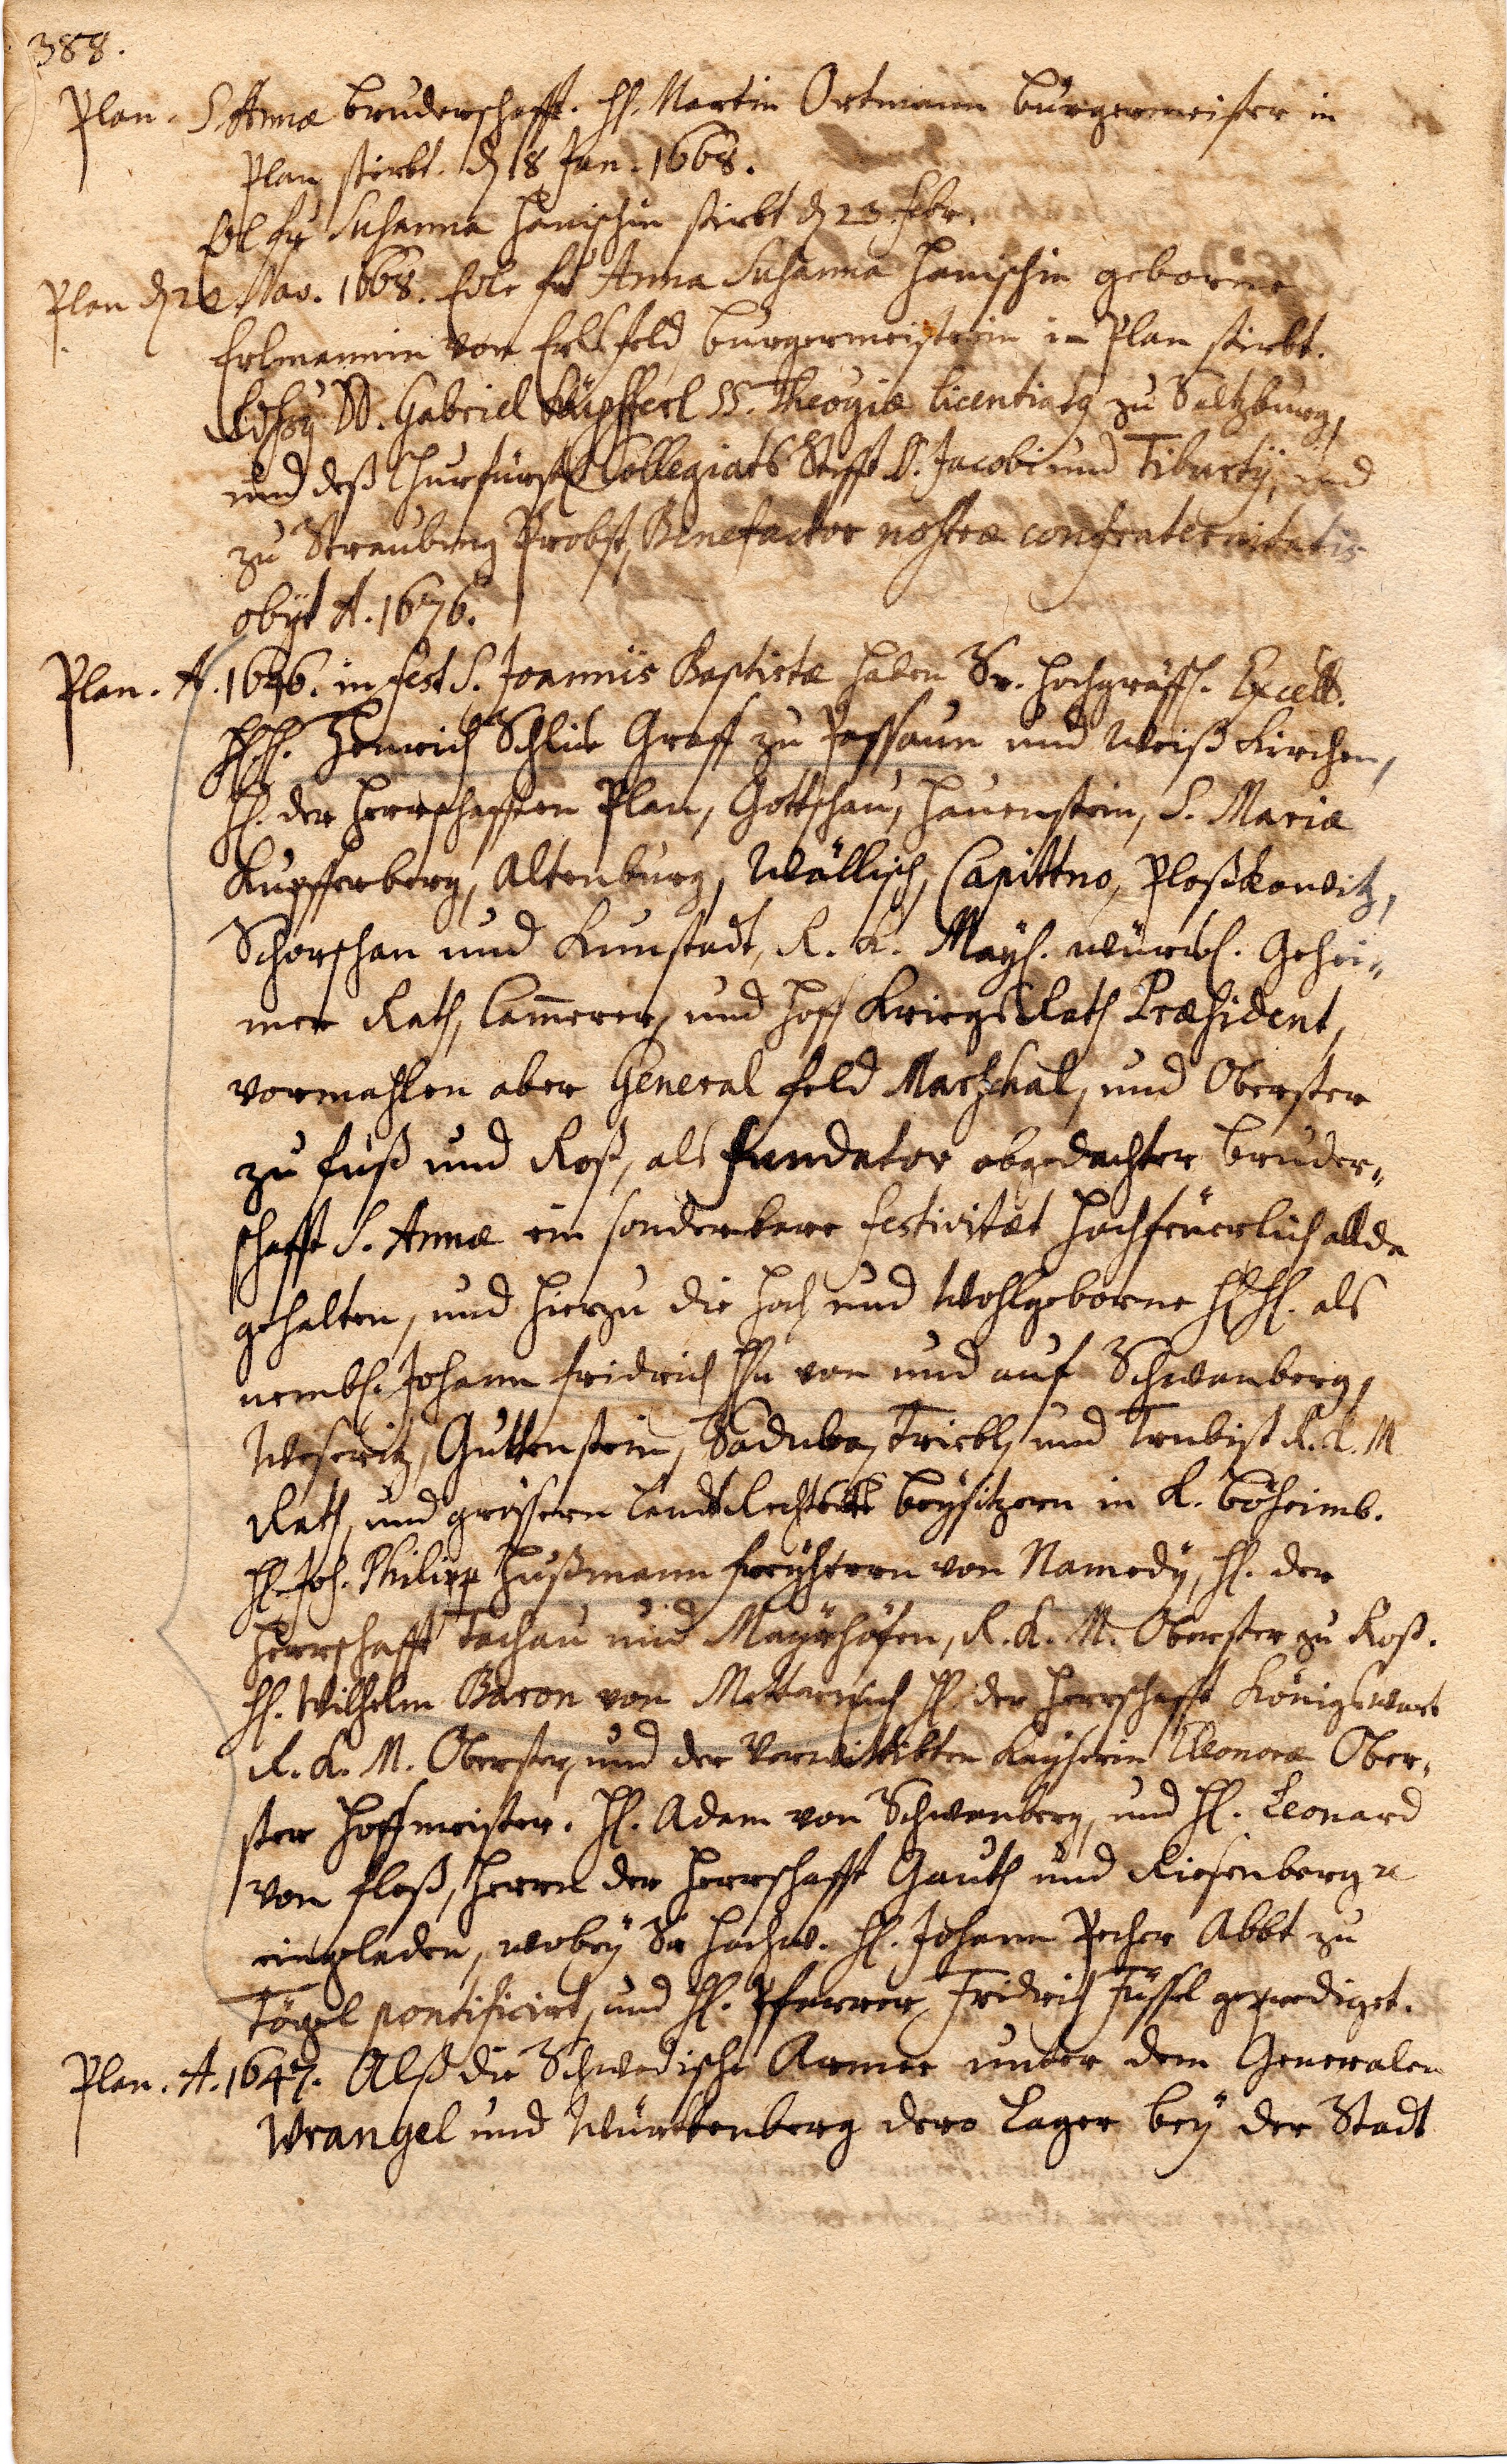 388.
Plan. S. Annæ bruderschafft. H. Martin Ortmann burgermeister in
Plan stirbt. d 18 Jan. 1668.
Susanna Hanischin stirbt d 23 febr.
Plan d 22 Nov. 1668. Edle fr Anna Susanna Hanischin geborne
Erlmannin von Erlsfeld burgermeisterin in Plan stirbt.
D. Gabriel Küpfferl SS. Theogiæ licentiatg zu Saltzburg,
und deß Churfürstl Collegiats Stifft S. Jacobi und Tiburtÿ, und
zu Straubing Probst, Benefactor nostræ confraternitatis
obÿt A. 1676.
Plan. A. 1646. in fest S. Joannis Baptistæ haben Sr. Hochgräffl. Excell.
HH. Henrich Schlick Graff zu Passaun und Weiß Kirchen,
H. der Herrschafften Plan, Gottschau, Hauenstein, S. Mariæ
Kupfferberg, Altenburg, Wällisch, Capittno, Ploßkowitz,
Schorschan und Kunstadt, R. K. Maÿ. würckl. Gehei-
mer Rath, Cammerer, und Hoff KriegsRath Præsident,
vormahlen aber General feld Marschal, und Obrister
zu fuß und Roß, als fundator obgedachter bruder-
schafft S. Annæ ein sonderbare festivitæt hochfeüerlich allda
gehalten, und hierzu die Hoch und Wohlgeborne HH. als
nembl. Johann fridrich Hn von und auf Schwanberg,
Weseritz, Guttenstein, Saduba, Triebl, und Trubist R. K. M
Rath, und grössern LandtRechtens beÿsitzern in K. böheimb.
H. Joh. Philipp Hußmann freÿherrn von Namedÿ, H. der
Herrschafft Tachau und Maÿrhöfen, R. K. M. Obrister zu Roß.
H. Wilhelm Baron von Metternich H der Herrschafft Königswart
R. K. M. Obrister, und der Verwittibten Kaÿserin Eleonoræ Ober-
ster Hoffmeister. H. Adam von Schwanberg, und H. Leonard
von floß, Herrn der Herrschafft Gauth und Riesenberg
eingeladen, wobeÿ Sr Hochw. H. Johann Pecher Abbt zu
Tögel pontificirt, und H. Pfarrer, Fridrich Füssel geprediget.
Plan. A. 1647. Alß die Schwedische Armee unter dem Generalen
Wrangel und Würtenberg dero Lager beÿ der Stadt